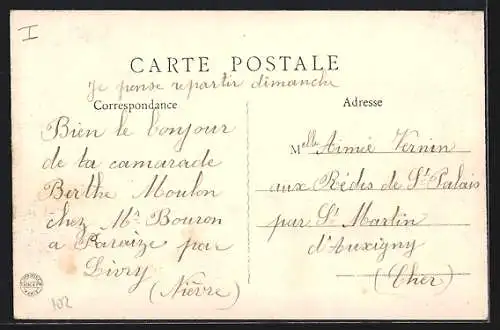 I
CARTE POSTALE
je pense repartir dimanche
Correspondance
Bien le bonjour
de ta camarade
Berthe Moulon
chez Mr Bouron
a Paraize par
Livry
(Nièvre)
102
Adresse
Melle Aimée Vernin
aux Rédes de St Palais
par St Martin
d'Auxigny
(Cher)